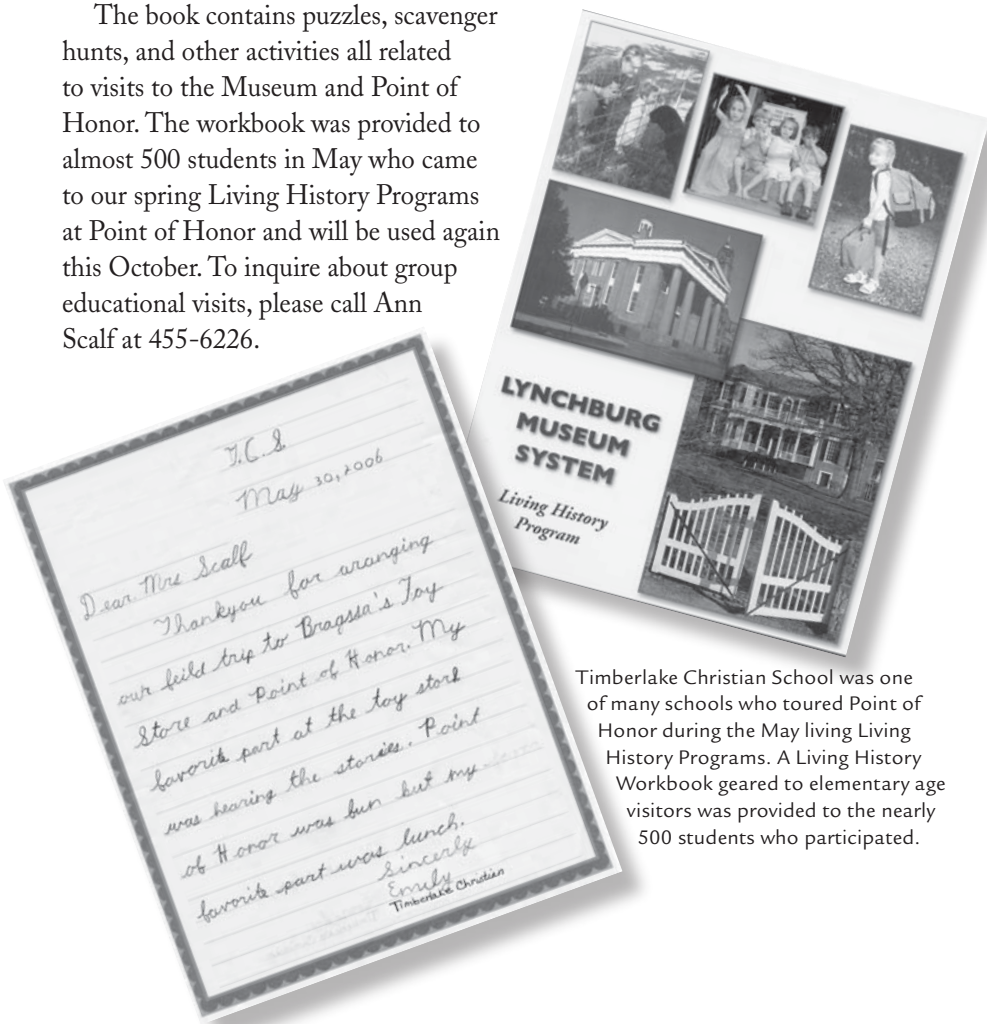 The book contains puzzles, scavenger
hunts, and other activities all related
to visits to the Museum and Point of
Honor. The workbook was provided to
almost 500 students in May who came
to our spring Living History Programs
at Point of Honor and will be used again
this October. To inquire about group
educational visits, please call Ann
Scalf at 455-6226.
LYNCHBURG
MUSEUM
SYSTEM
Living History
Program
T.C.S.
May 30, 2006
Dear Mrs Scalf
Thankyou for aranging
our feild trip to Bragssa's Toy
Store and Point of Honor. My
favorite part at the toy stork
was hearing the stories. Point
of Honor was fun but my
favorite part was lunch.
Sincerly
Emily
Timberlake Christian
Timberlake Christian School was one
of many schools who toured Point of
Honor during the May living Living
History Programs. A Living History
Workbook geared to elementary age
visitors was provided to the nearly
500 students who participated.